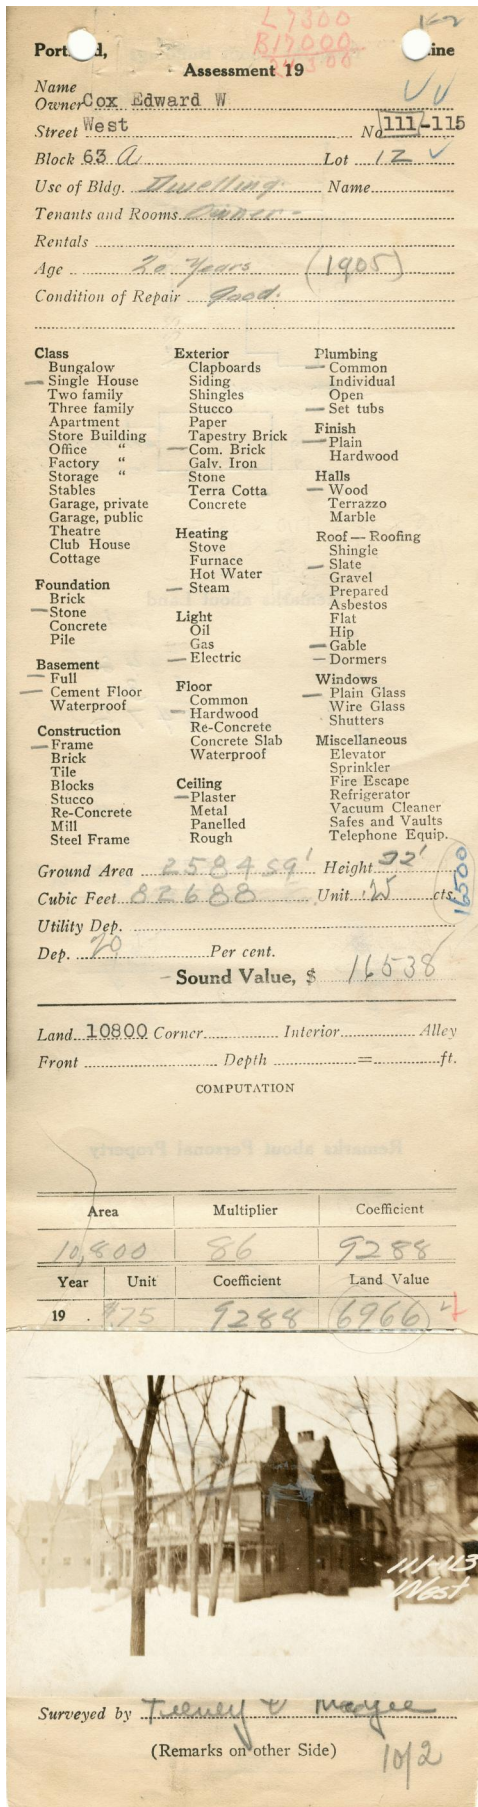 L 7300
B 17000
24300
Portland, Maine
Assessment 19
Name
Owner Cox Edward W
Street West No 111-115
Block 63 A Lot 12
Use of Bldg. Dwelling Name
Tenants and Rooms Owner -
Rentals
Age 20 Years (1905)
Condition of Repair good.
Class
Bungalow
— Single House
Two family
Three family
Apartment
Store Building
Office "
Factory "
Storage "
Stables
Garage, private
Garage, public
Theatre
Club House
Cottage
Foundation
Brick
— Stone
Concrete
Pile
Basement
— Full
— Cement Floor
Waterproof
Construction
— Frame
Brick
Tile
Blocks
Stucco
Re-Concrete
Mill
Steel Frame
Exterior
Clapboards
Siding
Shingles
Stucco
Paper
Tapestry Brick
— Com. Brick
Galv. Iron
Stone
Terra Cotta
Concrete
Heating
Stove
Furnace
Hot Water
— Steam
Light
Oil
Gas
— Electric
Floor
Common
— Hardwood
Re-Concrete
Concrete Slab
Waterproof
Ceiling
— Plaster
Metal
Panelled
Rough
Plumbing
— Common
Individual
Open
— Set tubs
Finish
— Plain
Hardwood
Halls
— Wood
Terrazzo
Marble
Roof — Roofing
Shingle
— Slate
Gravel
Prepared
Asbestos
Flat
Hip
— Gable
— Dormers
Windows
— Plain Glass
Wire Glass
Shutters
Miscellaneous
Elevator
Sprinkler
Fire Escape
Refrigerator
Vacuum Cleaner
Safes and Vaults
Telephone Equip.
Ground Area 2584 sq' Height 32'
Cubic Feet 82688 Unit .25 cts.
16500
Utility Dep.
Dep. 20 Per cent.
Sound Value, $ 16538
Land 10800 Corner Interior Alley
Front Depth = ft.
COMPUTATION
Area Multiplier Coefficient
10,800 86 9288
Year Unit Coefficient Land Value
19 . $.75 9288 6966
111-113
West
Surveyed by
(Remarks on other Side)
10/2